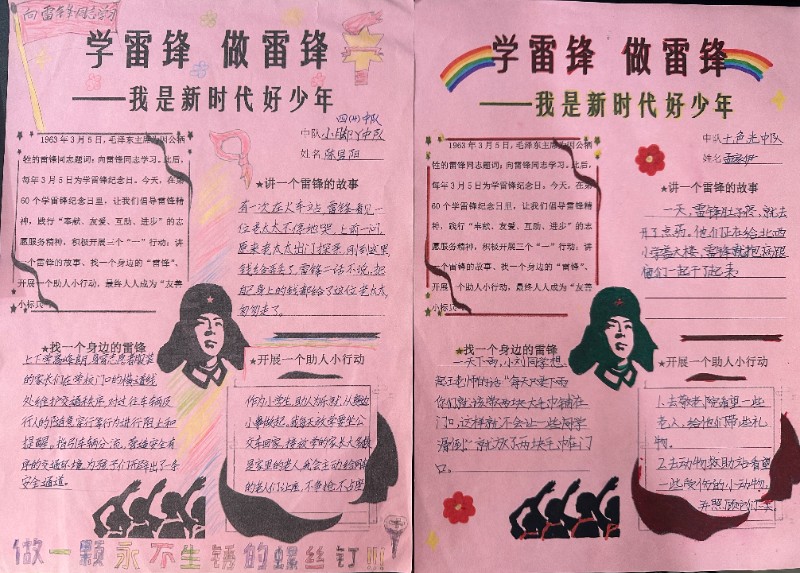 向雷锋同志学习
学雷锋 做雷锋
——我是新时代好少年
四(4)中队
中队小脚丫中队
姓名
1963年3月5日,毛泽东主席为因公牺
牲的雷锋同志题词:向雷锋同志学习。此后,
每年3月5日为学雷锋纪念日。今天,在第
60个学雷锋纪念日里,让我们倡导雷锋精
神,践行“奉献、友爱、互助、进步”的志
愿服务精神,积极开展三个“一”行动:讲
一个雷锋的故事、找一个身边的“雷锋”、
开展一个助人小行动,最终人人成为“友善
小标兵”
★讲一个雷锋的故事
有一次在火车站,雷锋看见一
位老太太不停地哭,上前一问,
原来老太太出门探亲,刚到这里
钱给丢了,雷锋二话不说,把
自己身上的钱都给了这位老太太,
匆匆走了。
★找一个身边的雷锋
上下学高峰期,身穿志愿者服装
的家长们在学校门口的横道线
处维护交通秩序,对过往车辆及
行人的随意穿行等行为进行阻止和
提醒。指引车辆分流,营造安全有
序的交通环境,为孩子们开辟出了一条
安全通道。
★开展一个助人小行动
作为小学生,助人为乐就从身边
小事做起,我每天放学要坐公
交车回家,接放学的家长大多数
是家里的老人,我会主动给
的老人们让座,不争抢,不占座
做一颗永不生锈的螺丝钉!!!
学雷锋 做雷锋
——我是新时代好少年
中队七色光中队
姓名
1963年3月5日,毛泽东主席为因公牺
牲的雷锋同志题词:向雷锋同志学习。此后,
每年3月5日为学雷锋纪念日。今天,在第
60个学雷锋纪念日里,让我们倡导雷锋精
神,践行“奉献、友爱、互助、进步”的志
愿服务精神,积极开展三个“一”行动:讲
一个雷锋的故事、找一个身边的“雷锋”、
开展一个助人小行动,最终人人成为“友善
小标兵”
★讲一个雷锋的故事
一天,雷锋肚子疼,就去
开了点药,他们正在给北西
小学盖大楼,雷锋就抱好跟
他们一起干了起来
★找一个身边的雷锋
一天下雨,小刘同学想
起王老师的话“每天只要下雨
你们就该带两块大毛巾铺在
门口,这样就不会让一些同学
滑倒”就放了两块毛巾在门
口。
★开展一个助人小行动
1.去敬老院看望一些
老人,给他们带些礼
物。
2.去动物救助站看望
一些受伤的小动物,
并照顾它们一天。